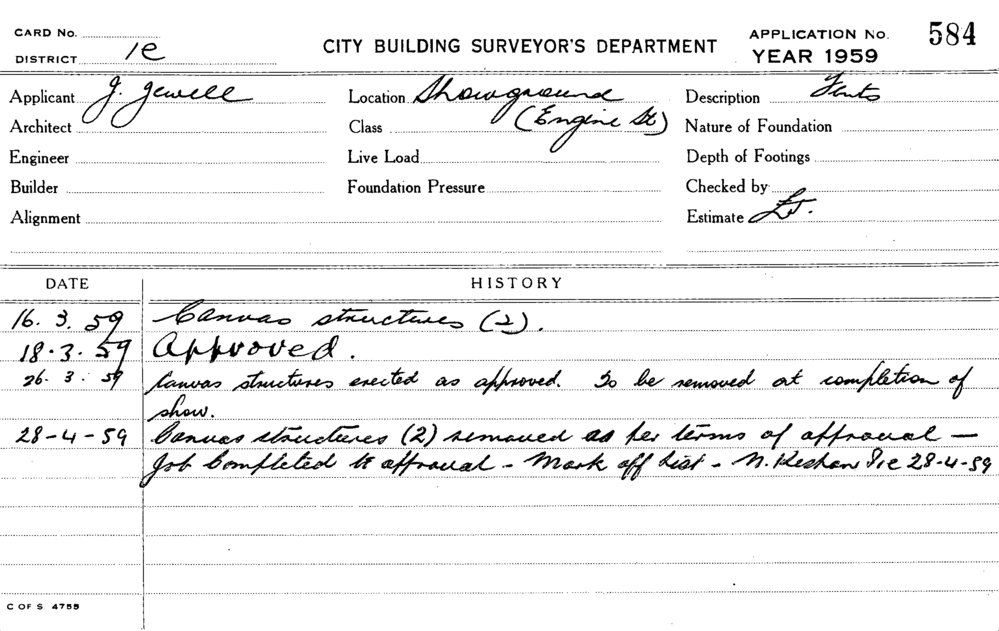 CARD No.
DISTRICT 1e
CITY BUILDING SURVEYOR'S DEPARTMENT
APPLICATION No. 584
YEAR 1959
Applicant J. Jewell
Location Showground
Description Tents
Architect
Class (Engine St)
Nature of Foundation
Engineer
Live Load
Depth of Footings
Builder
Foundation Pressure
Checked by
Alignment
Estimate
DATE HISTORY
16. 3. 59 Canvas structures (2).
18. 3. 59 Approved.
26. 3. 59 Canvas structures erected as approved. To be removed at completion of
show.
28-4-59 Canvas structures (2) removed as per terms of approval —
Job Completed to approval - Mark off list - 28-4-59
C OF S 4755